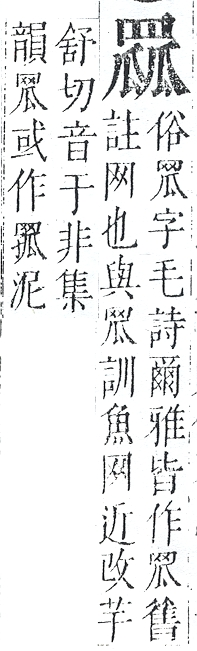 俗罛字毛詩爾雅皆作罛舊
註网也與罛訓魚网近改芋
舒切音于非集
韻罛或作泥